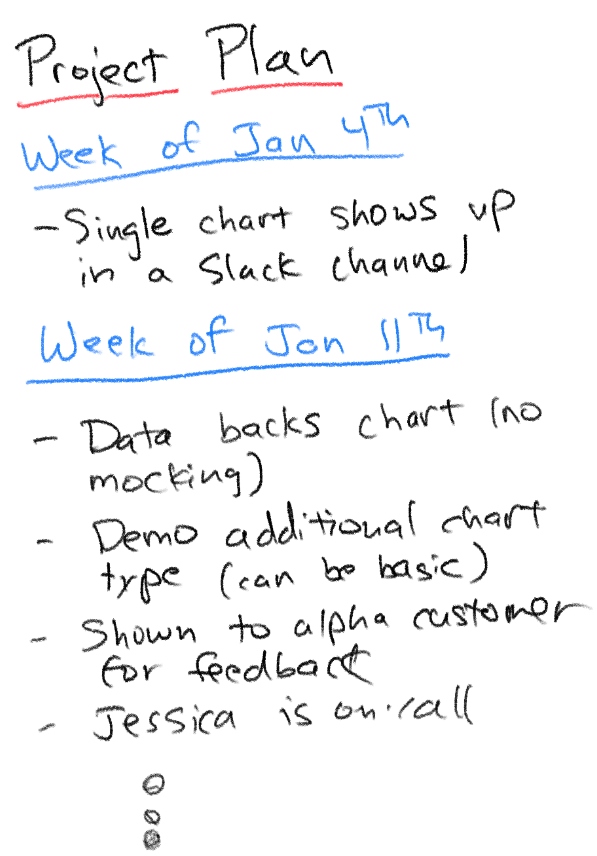 Project Plan
Week of Jan 4Th
- Single chart shows up
in a Slack channel
Week of Jan 11Th
- Data backs chart (no
mocking)
- Demo additional chart
type (can be basic)
- Shown to alpha customer
for feedback
- Jessica is on-call